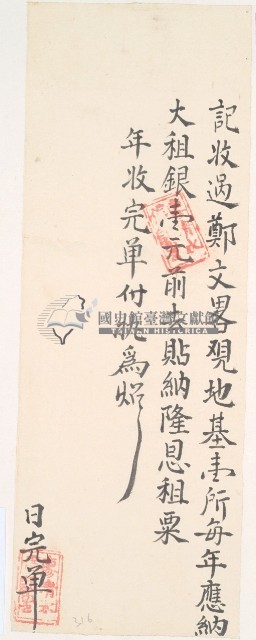 記收過鄭文畧現地基壹所每年應納
大租銀壹元前去貼納隆恩租粟
年收完單付執為炤
日完單
國史館臺灣文獻館
TAIWAN HISTORICA
326